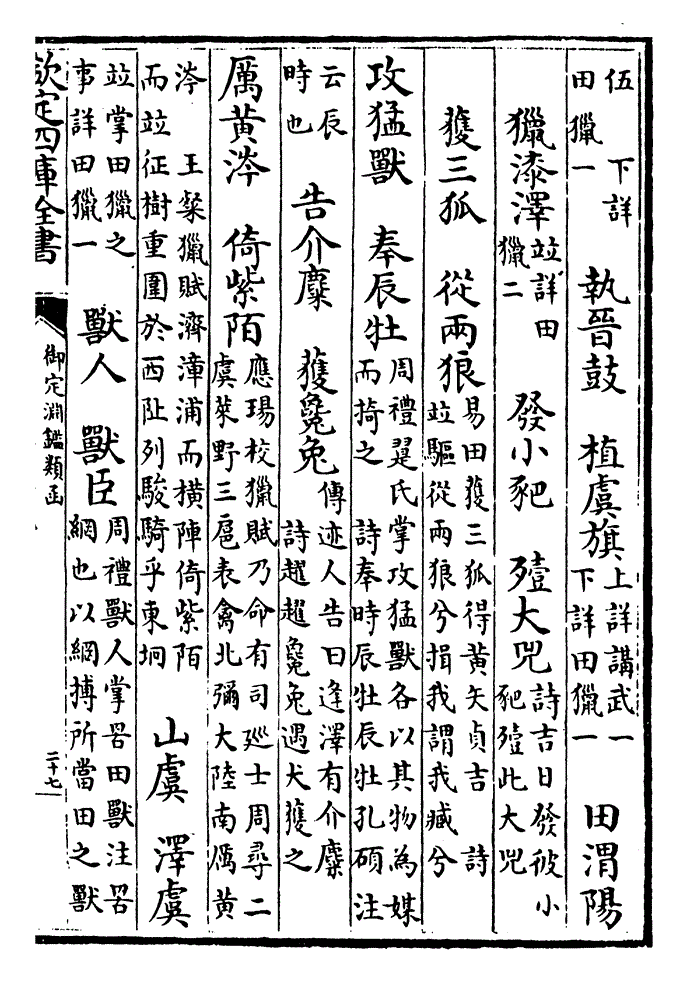 伍 下詳
田獵一
執晉鼓 植虞旗
上詳講武一
下詳田獵一
田渭陽
獵漆澤
竝詳田
獵二
發小豝 殪大兕
詩吉日發彼小
豝殪此大兕
獲三狐 從兩狼
易田獲三狐得黃矢貞吉 詩
竝驅從兩狼兮揖我謂我臧兮
攻猛獸 奉辰牡
周禮翨氏掌攻猛獸各以其物為媒
而掎之 詩奉時辰牡辰牡孔碩注
云辰
時也
告介麋 獲毚兔
傳迹人告曰逢澤有介麋
詩趯趯毚兔遇犬獲之
厲黃涔 倚紫陌
應瑒校獵賦乃命有司廵士周尋二
虞萊野三扈表禽北彌大陸南厲黃
涔 王粲獵賦濟漳浦而橫陣倚紫陌
而竝征樹重圍於西阯列駿騎乎東坰
山虞 澤虞
竝掌田獵之
事詳田獵一
獸人 獸臣
周禮獸人掌罟田獸注罟
網也以網搏所當田之獸
欽定四庫全書
御定淵鑑類函
二十七